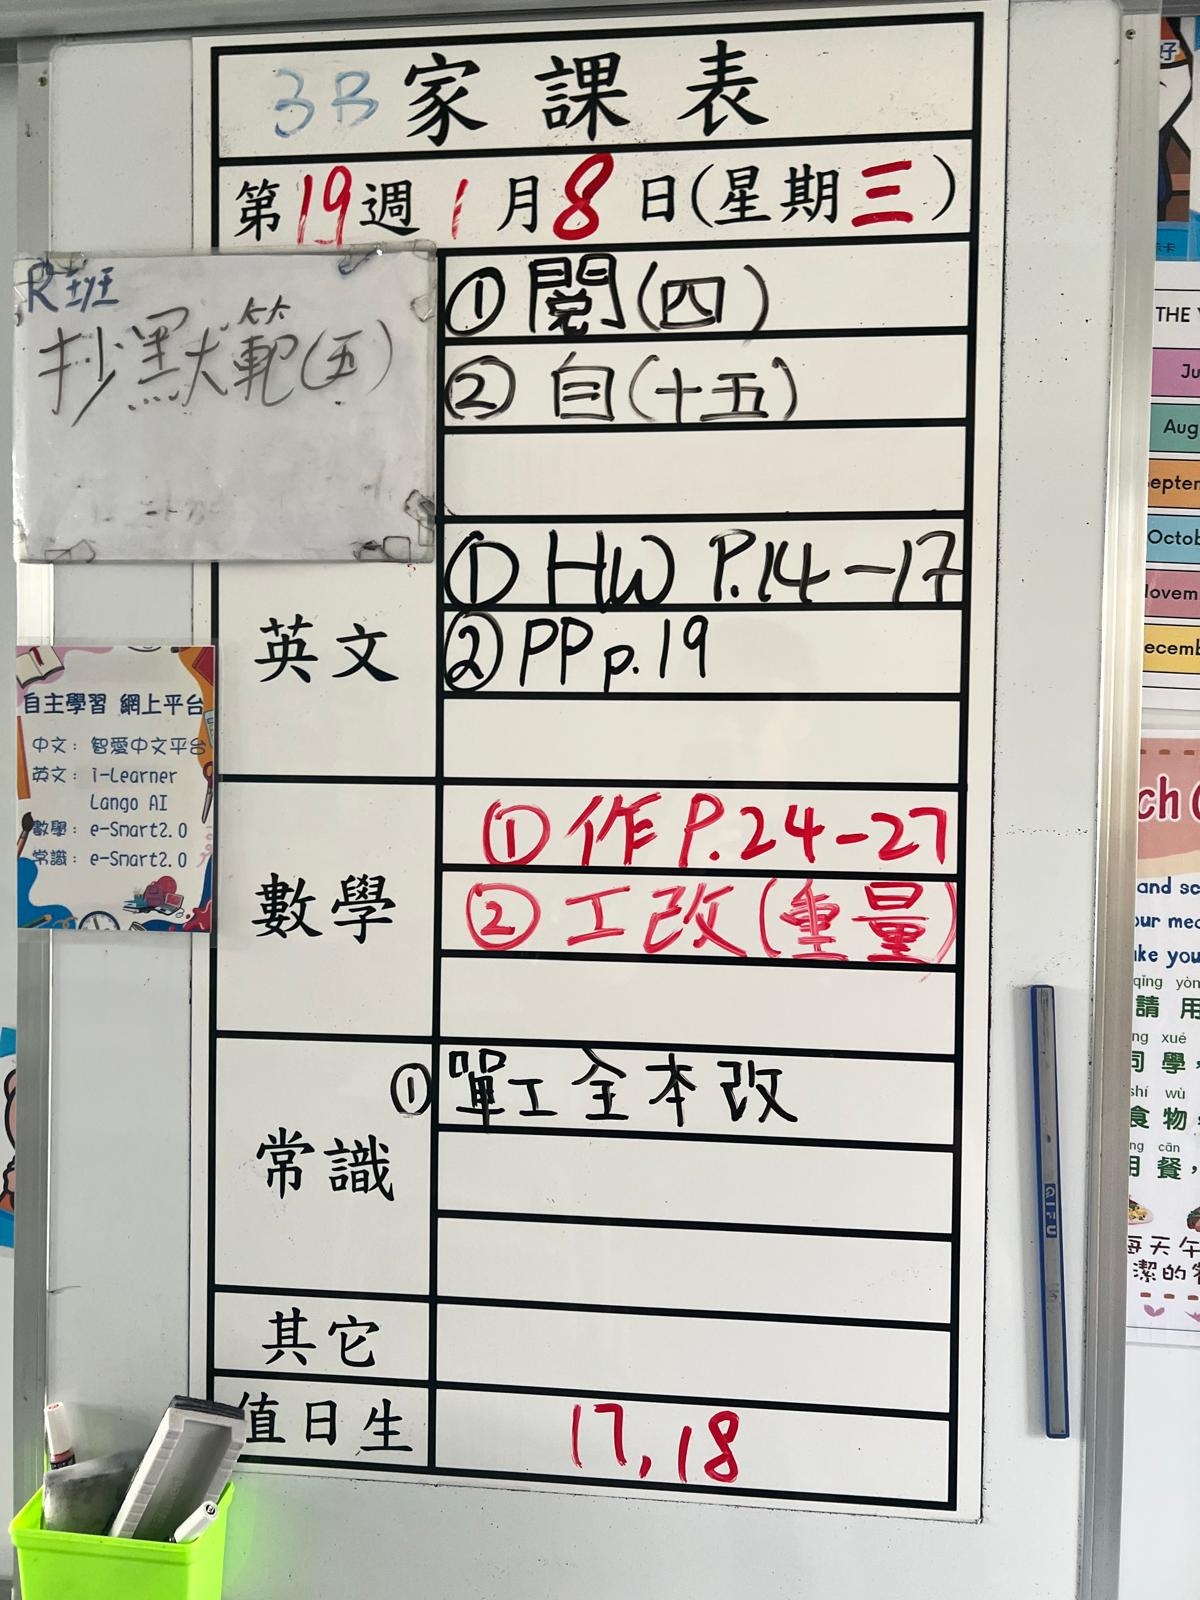 3B 家課表
第19週 1月8日(星期三)
R班
抄默範(五)
① 閱(四)
② 自(十五)
英文
① HW P.14-17
② PP p.19
數學
① 作 P.24-27
② 工改(重量)
常識
① 單工全本改
其它
值日生
17, 18
自主學習 網上平台
中文: 智愛中文平台
英文: i-Learner
Lango AI
數學: e-Smart2.0
常識: e-Smart2.0
好
卡
THE
Ju
Aug
eptem
Octob
ovem
ecemb
ch
and sc
our mea
ke you
qǐng yòn
請用
ng xué
同學,
shí wù
食物,
ng cān
用餐,
每天午
潔的
QIFU